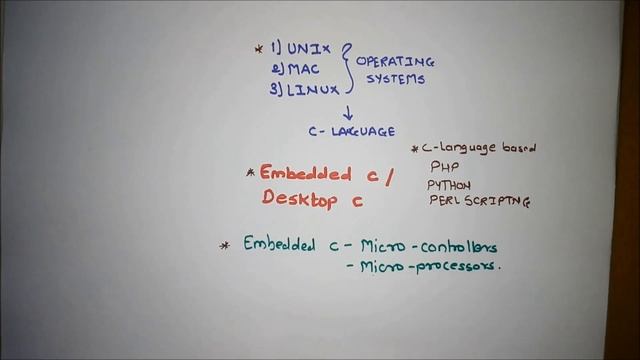 * 1) UNIX
2) MAC
3) LINUX
OPERATING
SYSTEMS
C - LANGUAGE
* C-Language based
PHP
PYTHON
PERL SCRIPTNG
* Embedded c /
Desktop c
* Embedded c - Micro-controllers
- Micro-processors.